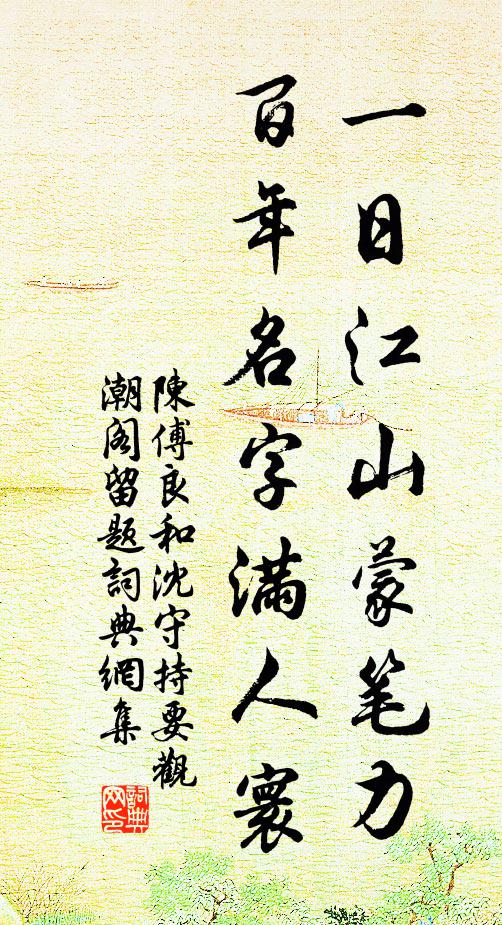 一日江山蒙笔力
百年名字满人寰
陳傅良和沈守持要觀
潮阁留题詞典網集
詞典网印